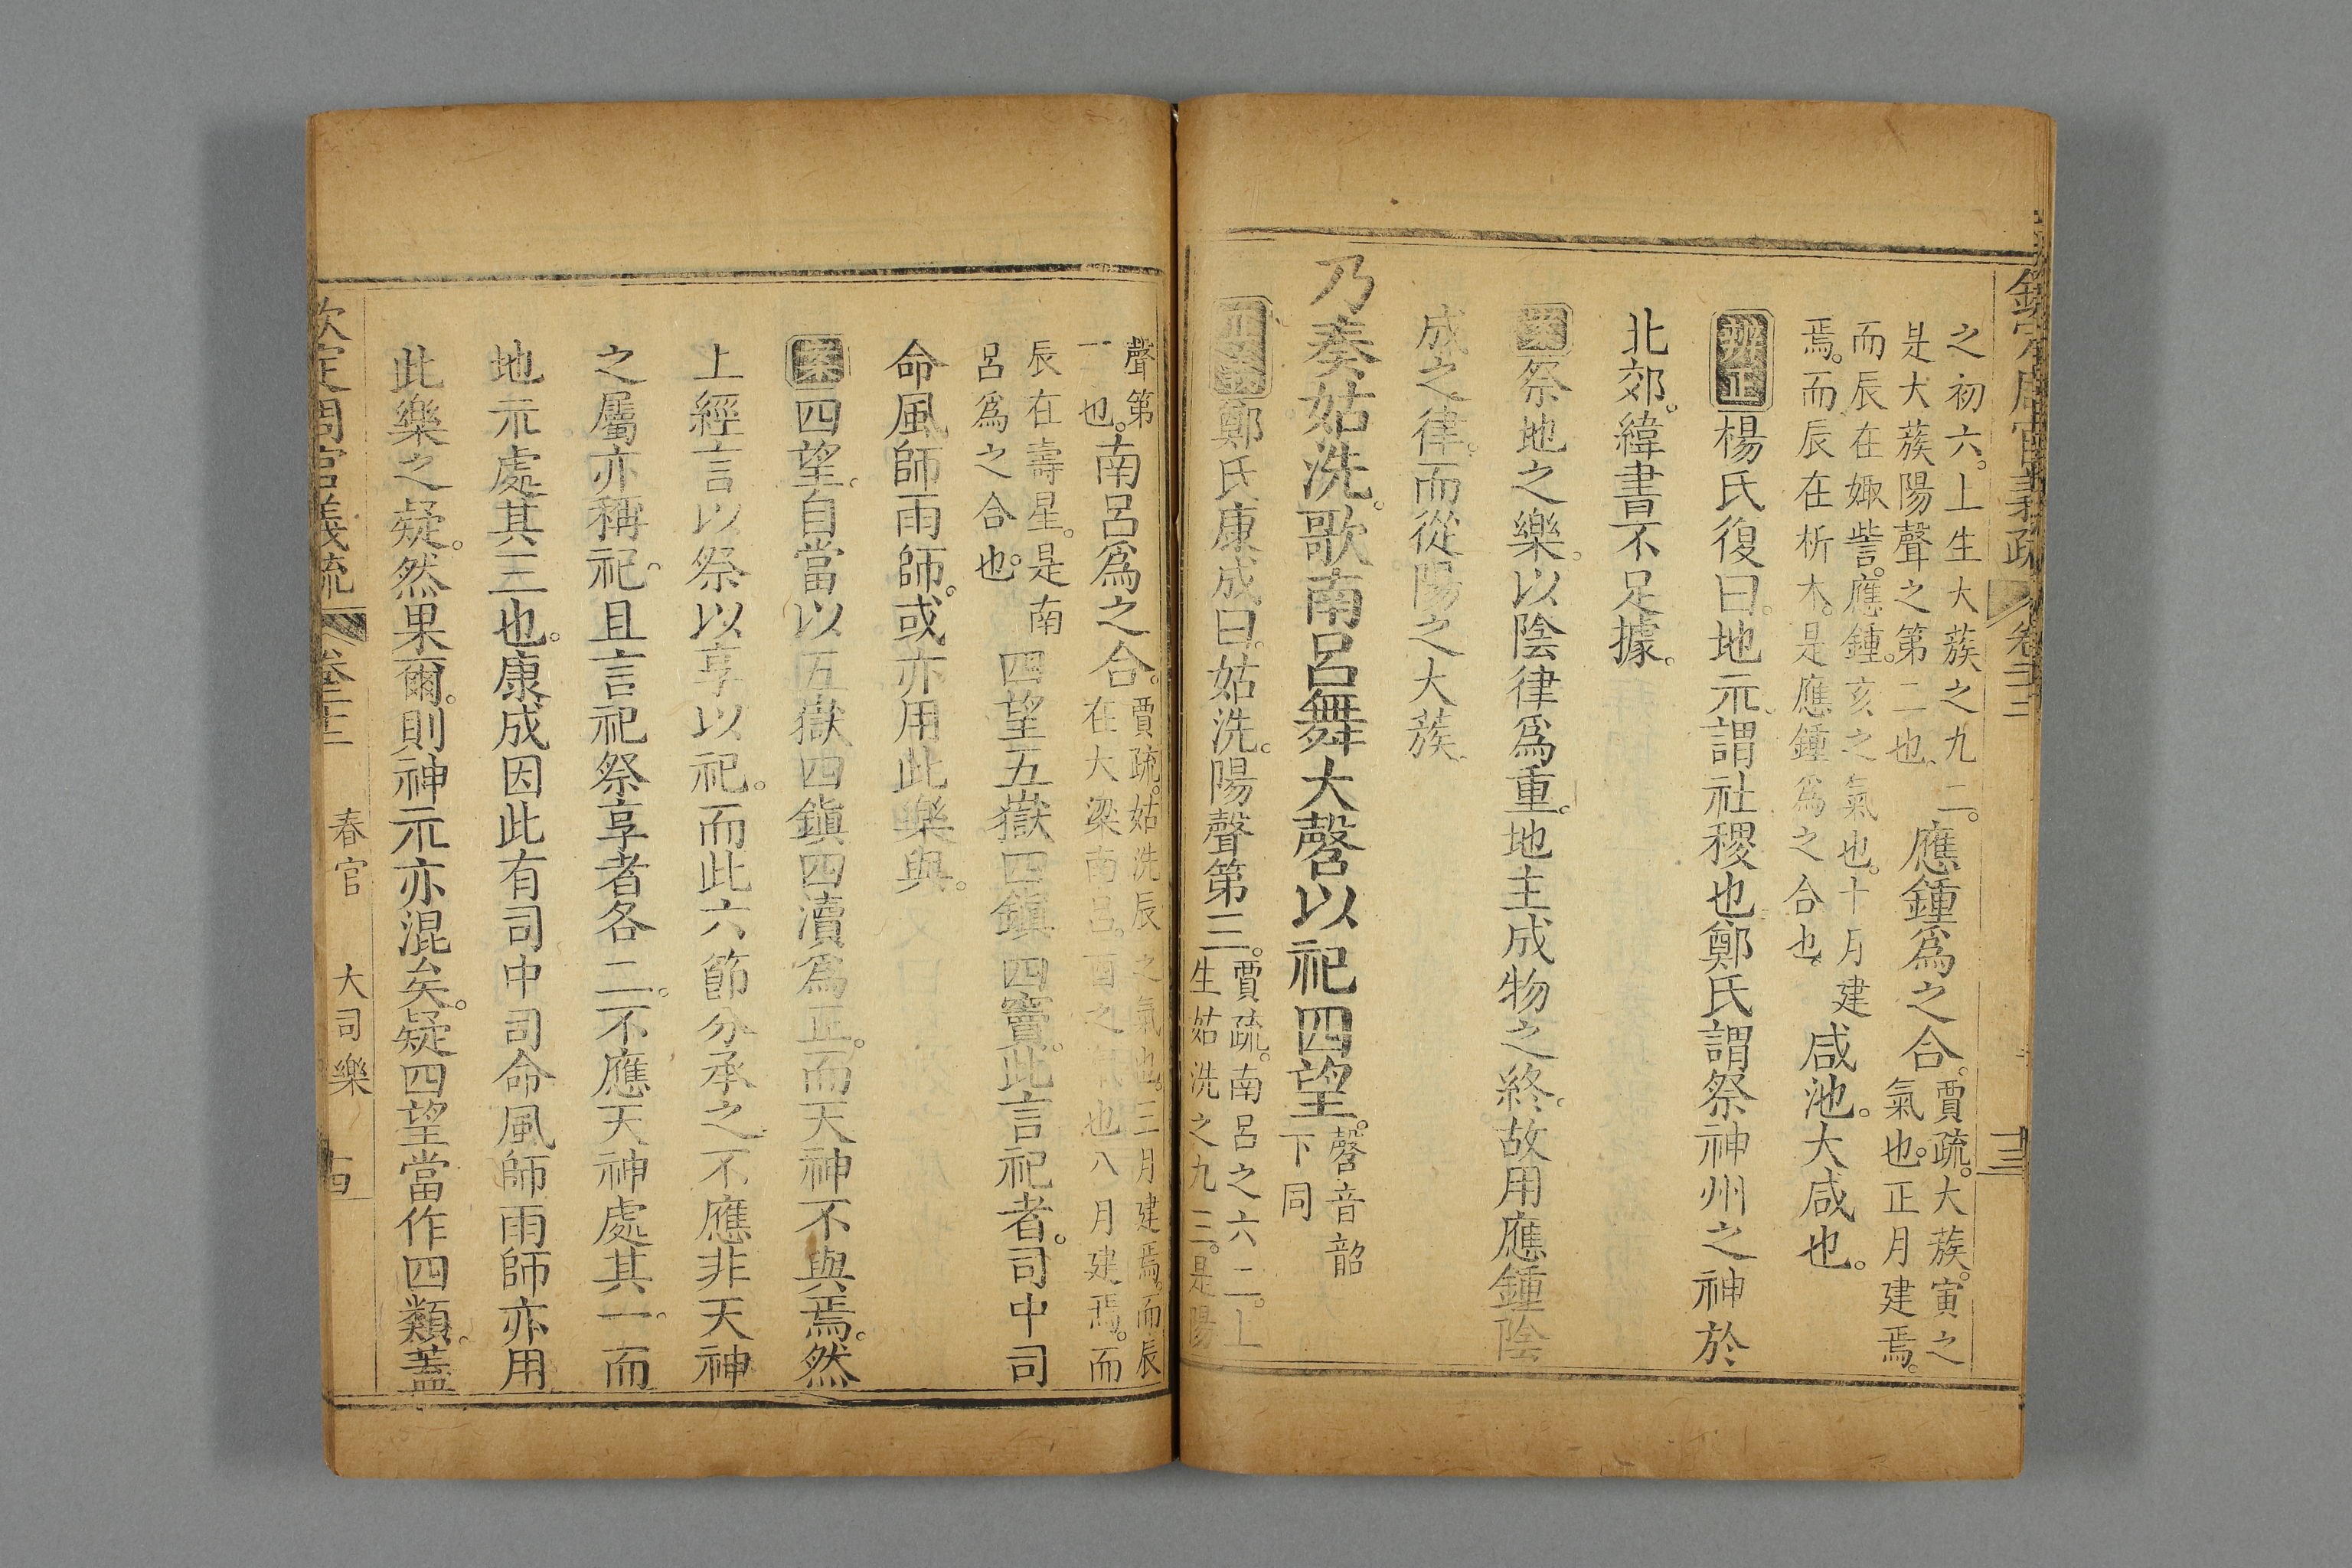 欽定周官義疏 卷二十二 十三
之初六。上生大蔟之九二。
是大蔟陽聲之第二也、應鍾為之合。賈疏。大蔟。寅之
氣也。正月建焉。
而辰在娵訾。應鍾。亥之氣也。十月建
焉。而辰在析木。是應鍾為之合也。咸池。大咸也。
辨正楊氏復曰。地示。謂社稷也鄭氏謂祭神州之神於
北郊。緯書不足據。
案祭地之樂。以陰律為重。地主成物之終。故用應鍾陰
成之律。而從陽之大蔟。
乃奏姑洗。歌南呂舞大㲈以祀四望。㲈音韶
下同
正義鄭氏康成曰。姑洗。陽聲第三。賈疏。南呂之六二。上
生姑洗之九三。是陽
聲第
一也。南呂為之合。賈疏。姑洗辰之氣也。三月建焉。而辰
在大梁南呂。酉之氣也八月建焉。而
辰在壽星。是南
呂為之合也。四望五嶽四鎮四竇。此言祀者。司中司
命風師雨師。或亦用此樂與。
案四望。自當以五嶽四鎮四瀆為正。而天神不與焉。然
上經言以祭以享以祀。而此六節分承之不應非天神
之屬亦稱祀。且言祀祭享者各二。不應天神處其一。而
地示處其三也。康成因此有司中司命風師雨師亦用
此樂之疑。然果爾。則神示亦混矣。疑四望當作四類。蓋
欽定周官義疏 卷二十二 春官 大司樂 十四